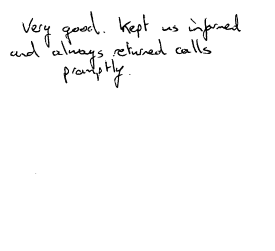 Very good. Kept us informed
and always returned calls
promptly.